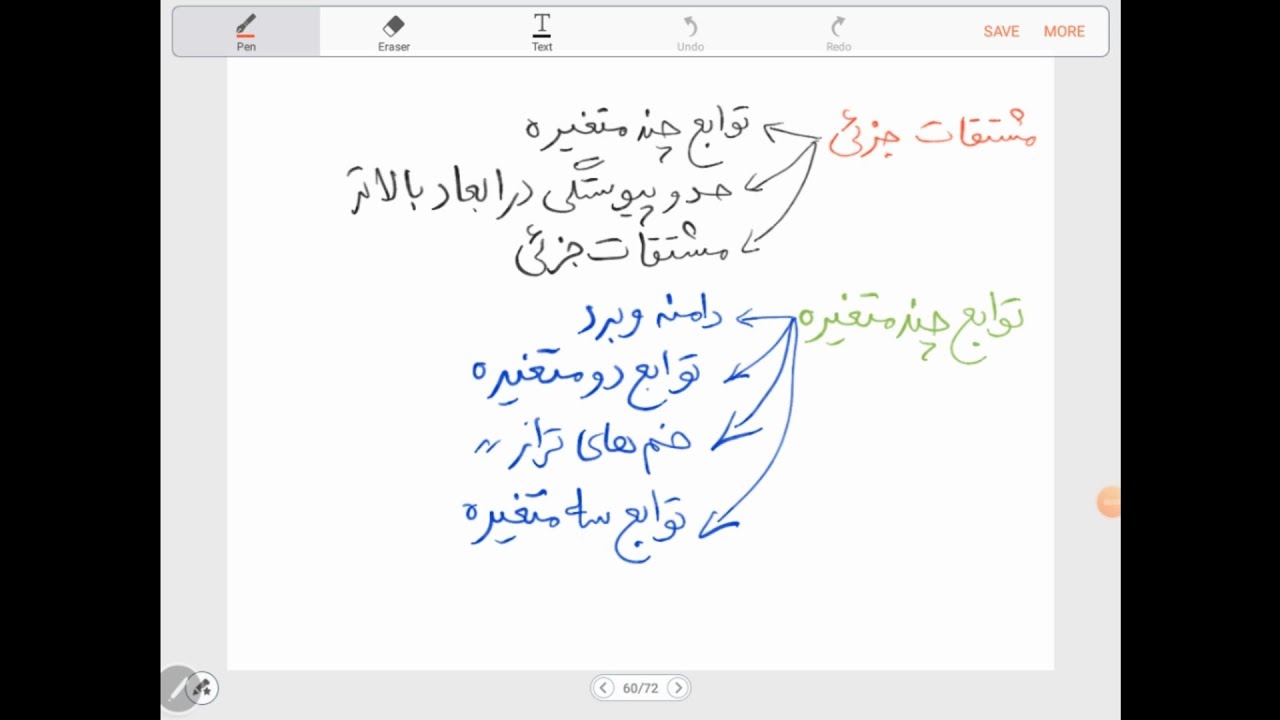 Pen
Eraser
Text
Undo
Redo
SAVE
MORE
مشتقات جزئی
توابع چند متغیره
حد و پیوستگی در ابعاد بالاتر
مشتقات جزئی
توابع چند متغیره
دامنه و برد
توابع دو متغیره
خم های تراز "
توابع سه متغیره
60/72